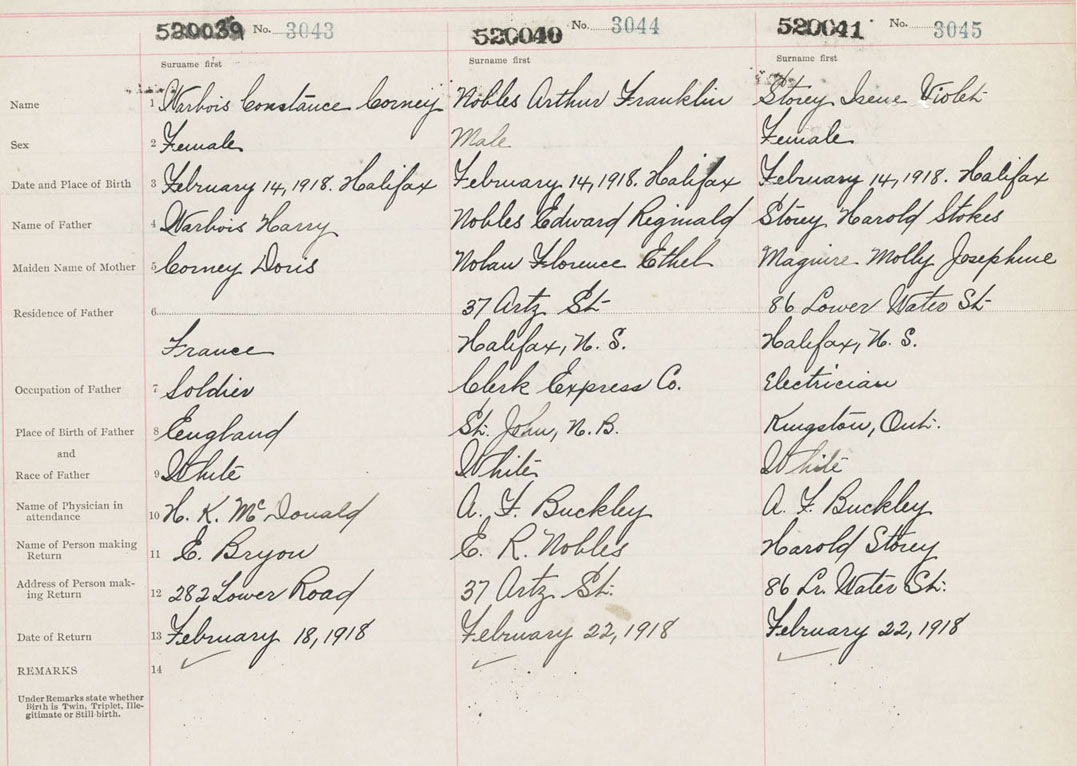 520039 No. 3043 520040 No. 3044 520041 No. 3045
Surname first Surname first Surname first
Name 1 Warbois Constance Corney Nobles Arthur Franklin Storey Irene Violet
Sex 2 Female Male Female
Date and Place of Birth 3 February 14, 1918. Halifax February 14, 1918. Halifax February 14, 1918. Halifax
Name of Father 4 Warbois Harry Nobles Edward Reginald Storey Harold Stokes
Maiden Name of Mother 5 Corney Doris Nolan Florence Ethel Maguire Molly Josephine
Residence of Father 6 37 Artz St 86 Lower Water St
France Halifax, N. S. Halifax, N. S.
Occupation of Father 7 Soldier Clerk Express Co. Electrician
Place of Birth of Father 8 England St. John, N. B. Kingston, Ont.
and
Race of Father 9 White White White
Name of Physician in
attendance 10 H. K. McDonald A. F. Buckley A. F. Buckley
Name of Person making
Return 11 E. Bryon E. R. Nobles Harold Storey
Address of Person mak-
ing Return 12 282 Lower Road 37 Artz St. 86 Lr. Water St.
Date of Return 13 February 18, 1918 February 22, 1918 February 22, 1918
REMARKS 14
Under Remarks state whether
Birth is Twin, Triplet, Ille-
gitimate or Still-birth.